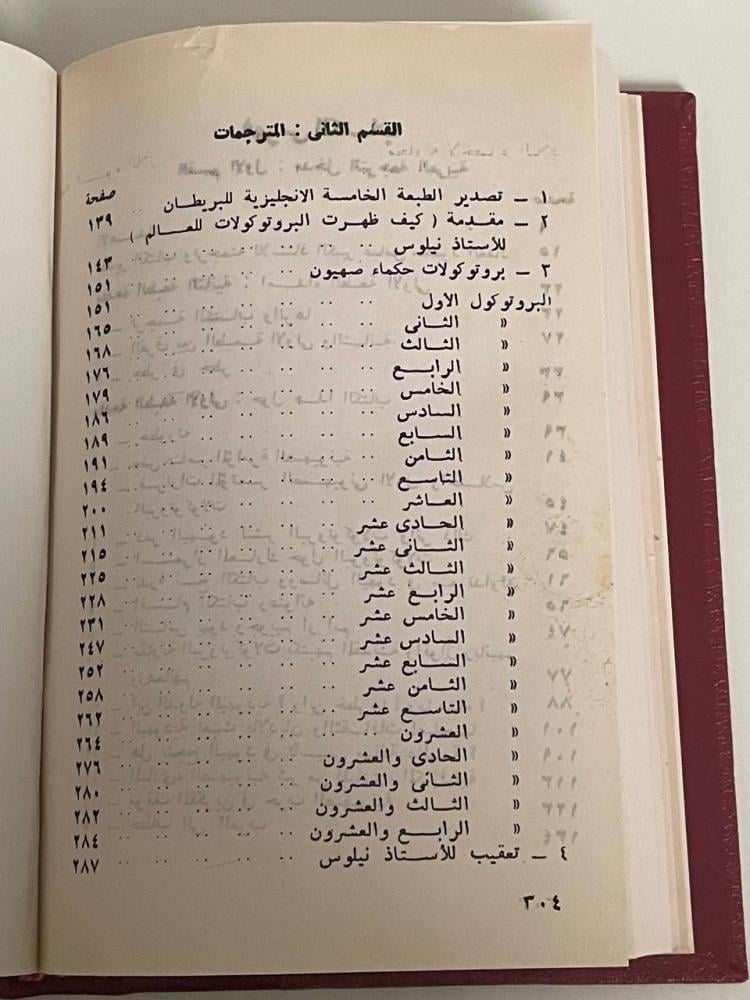 القسم الثانى : المترجمات
صفحة
١ — تصدير الطبعة الخامسة الانجليزية للبريطان ١٣٩
٢ — مقدمة ( كيف ظهرت البروتوكولات للعالم )
للأستاذ نيلوس ١٤٣
٣ — بروتوكولات حكماء صهيون ١٥١
البروتوكول الأول ١٥١
« الثانى ١٦٥
« الثالث ١٦٨
« الرابع ١٧٦
« الخامس ١٧٩
« السادس ١٨٦
« السابع ١٨٩
« الثامن ١٩١
« التاسع ١٩٤
« العاشر ٢٠٠
« الحادى عشر ٢١١
« الثانى عشر ٢١٥
« الثالث عشر ٢٢٥
« الرابع عشر ٢٢٨
« الخامس عشر ٢٣١
« السادس عشر ٢٤٧
« السابع عشر ٢٥٢
« الثامن عشر ٢٥٨
« التاسع عشر ٢٦٢
« العشرون ٢٦٤
« الحادى والعشرون ٢٧٦
« الثانى والعشرون ٢٨٠
« الثالث والعشرون ٢٨٢
« الرابع والعشرون ٢٨٤
٤ — تعقيب للأستاذ نيلوس ٢٨٧
٣٠٤